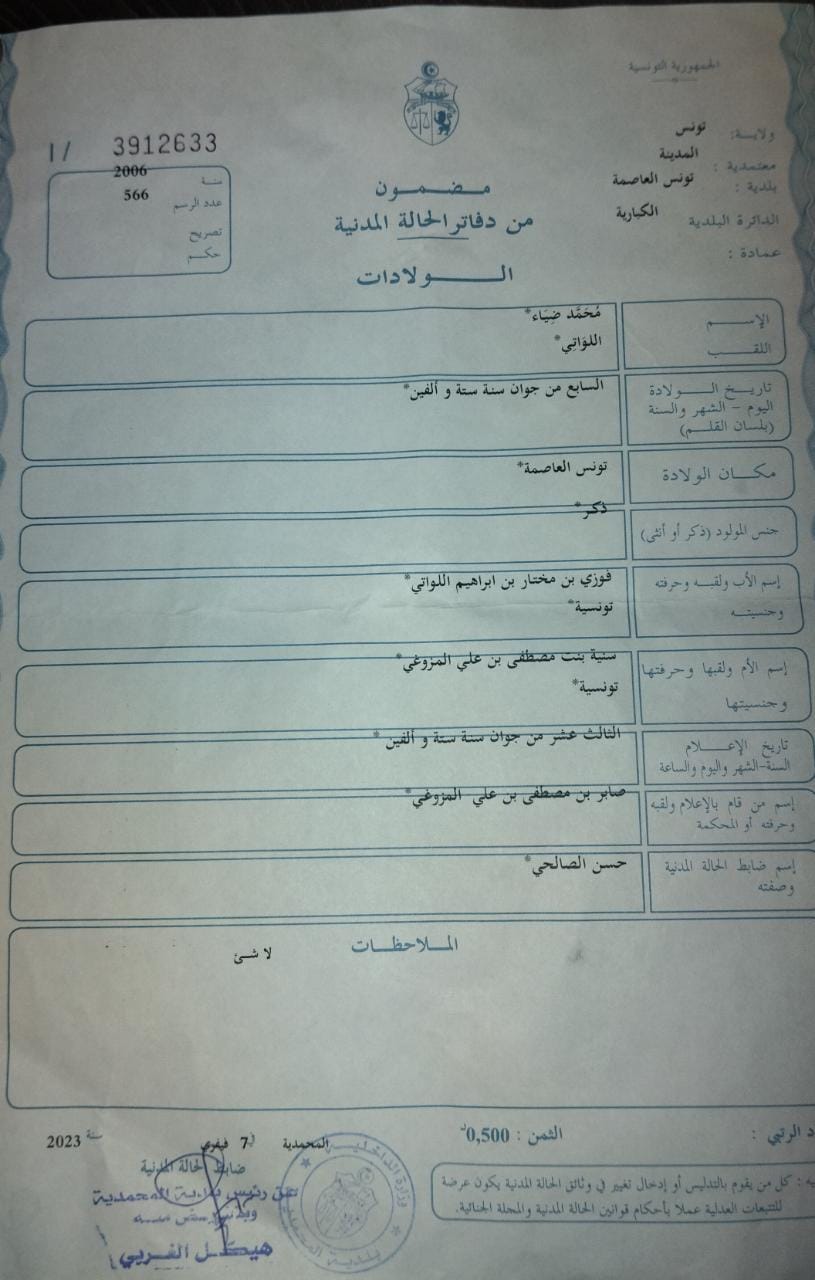 الجمهورية التونسية
ولاية: تونس
معتمدية : المدينة
بلدية : تونس العاصمة
الدائرة البلدية الكبارية
عمادة :
3912633 / I
سنة 2006
عدد الرسم 566
تصريح
حكم
مضمون
من دفاتر الحالة المدنية
الولادات
الإسم مُحَمَّد ضِيَاء*
اللقب اللوَاتِي*
تاريخ الولادة السابع من جوان سنة ستة و ألفين*
اليوم - الشهر والسنة
(بلسان القلم)
مكان الولادة تونس العاصمة*
جنس المولود (ذكر أو أنثى) ذكر*
إسم الأب ولقبه وحرفته فوزي بن مختار بن ابراهيم اللواتي*
وجنسيته تونسية*
إسم الأم ولقبها وحرفتها سنية بنت مصطفى بن علي المزوغي*
وجنسيتها تونسية*
تاريخ الإعلام الثالث عشر من جوان سنة ستة و ألفين *
السنة-الشهر واليوم والساعة
إسم من قام بالإعلام ولقبه صابر بن مصطفى بن علي المزوغي*
وحرفته أو المحكمة
إسم ضابط الحالة المدنية حسن الصالحي*
وصفته
الملاحظات
لا شئ
د الرتبي :
الثمن : 0,500د
يه : كل من يقوم بالتدليس أو إدخال تغيير في وثائق الحالة المدنية يكون عرضة
للتتبعات العدلية عملا بأحكام قوانين الحالة المدنية والمجلة الجنائية.
المحمدية في 7 فيفري سنة 2023
ضابط الحالة المدنية
عن رئيس بلدية المحمدية
هيكل الغربي
وزارة الداخلية
بلدية المحمدية